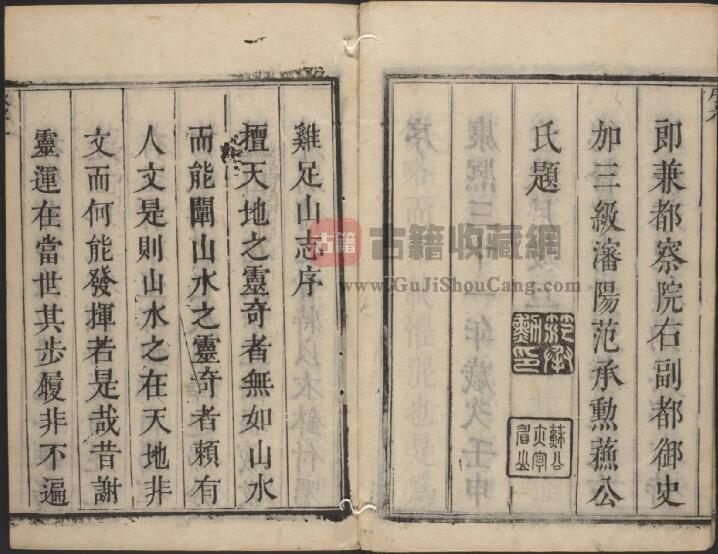 即兼都察院右副都御史
加三級瀋陽范承勳蘓公
氏題
范承勳印
雞足山志序
擅天地之靈奇者無如山水
而能闡山水之靈奇者賴有
人文是則山水之在天地非
文而何能發揮若是哉昔謝
靈運在當世其步履非不遍
古籍
古籍收藏網
www.GuJiShouCang.com